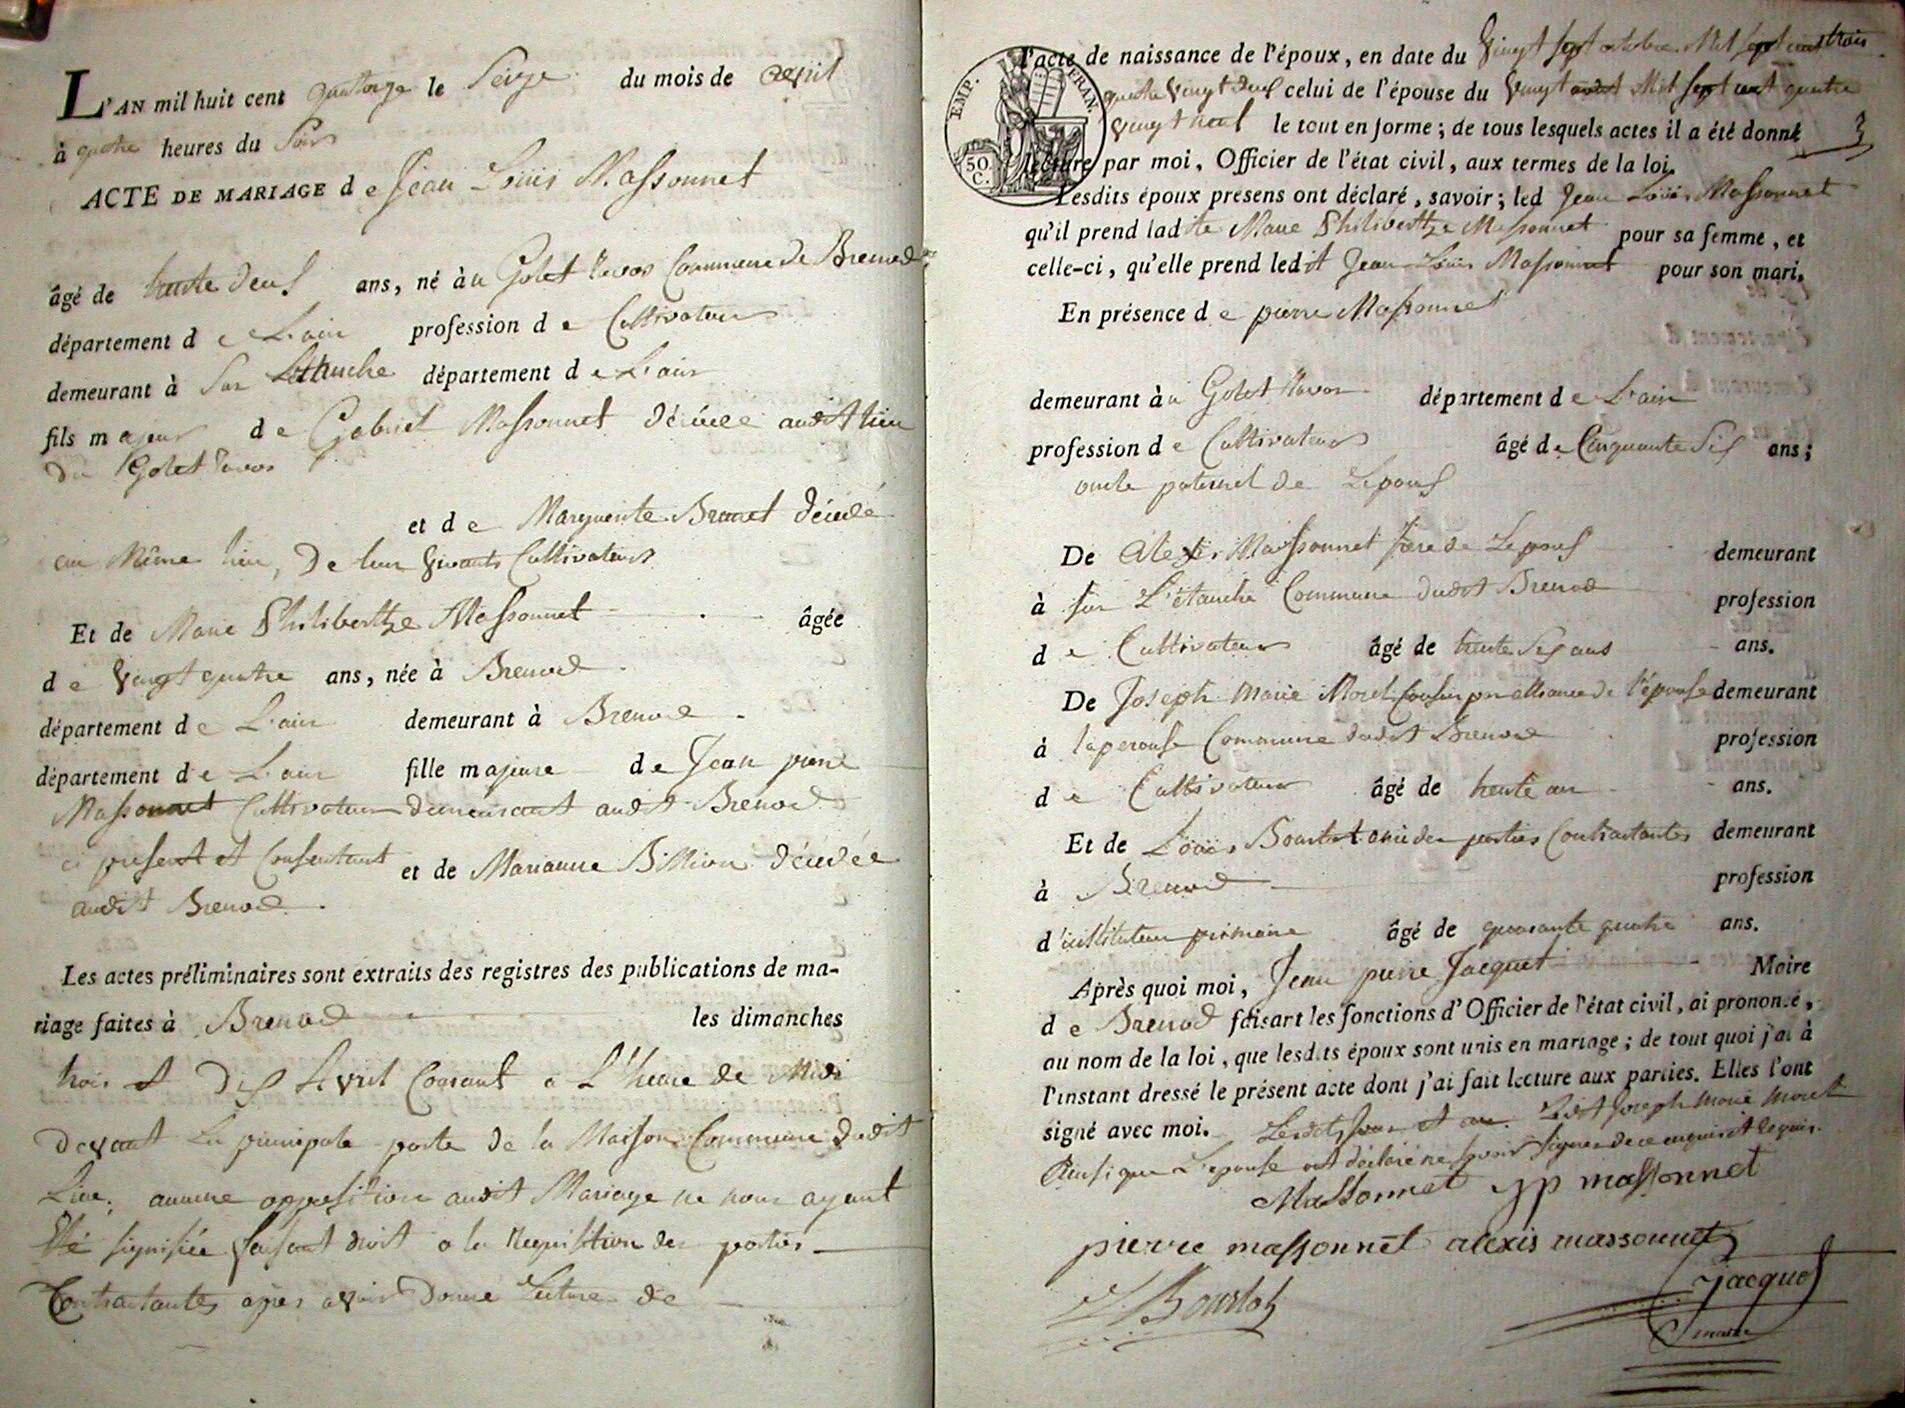 L'AN mil huit cent quatorze le Seize du mois de avril
à quatre heures du Soir
ACTE DE MARIAGE de Jean Louis Massonnet
âgé de trente deux ans, né àu Golet Commune de Brenod
département de L'ain profession de Cultivateur
demeurant à Sur Létanche département de L'ain
fils majeur de Gabriel Massonnet décédé audit lieu
du Golet
et de Marguerite Brunet décédé
au Même lieu, De leur vivants Cultivateurs
Et de Marie Philiberthe Massonnet âgée
de vingt quatre ans, née à Brenod
département de L'ain demeurant à Brenod
département de L'ain fille majeure de Jean pierre
Massonnet Cultivateur demeurant audit Brenod
ci present et Consentant et de Marianne Billion décédée
audit Brenod.
Les actes préliminaires sont extraits des registres des publications de ma-
riage faites à Brenod les dimanches
trois et Dix Avril Courant a L'heure de Midi
devant La principale porte de la Maison Commune dudit
Lieu; aucune opposition audit Mariage ne nous ayant
été signifiée faisant droit a la Requisition des parties
Contractantes apres avoir Donné Lecture de
EMP. FRAN.
50 C.
l'acte de naissance de l'époux, en date du vingt sept octobre Mil sept cent trois
quatre vingt deux celui de l'épouse du vingt août Mil sept cent quatre
vingt neuf le tout en forme; de tous lesquels actes il a été donné 3
lecture par moi, Officier de l'état civil, aux termes de la loi.
Lesdits époux présens ont déclaré, savoir; led Jean Louis Massonnet
qu'il prend ladite Marie Philiberthe Massonnet pour sa femme, et
celle-ci, qu'elle prend ledit Jean Louis Massonnet pour son mari.
En présence de pierre Massonnet
demeurant àu Golet département de L'ain
profession de Cultivateur âgé de Cinquante Six ans;
oncle paternel de Lepoux
De Alexis Massonnet frere de Lepoux demeurant
à sur L'étanche Commune dudit Brenod profession
de Cultivateur âgé de trente Six ans ans.
De Joseph Marie Morel Cousin par alliance de l'épouse demeurant
à laperouse Commune dudit Brenod profession
de Cultivateur âgé de trente un ans.
Et de Louis Bourlot ami des parties Contractantes demeurant
à Brenod profession
d'instituteur primaire âgé de quarante quatre ans.
Après quoi moi, Jean pierre Jacquet Maire
de Brenod faisant les fonctions d'Officier de l'état civil, ai prononcé,
au nom de la loi, que lesdits époux sont unis en mariage; de tout quoi j'ai à
l'instant dressé le présent acte dont j'ai fait lecture aux parties. Elles l'ont
signé avec moi. Ledit Joseph Marie Morel
Ainsi que L'epouse ont déclaré ne savoir signer de ce enquis et Requis.
Massonnet jp massonnet
pierre massonnet alexis massonnet
L. Bourlot Jacquet
maire